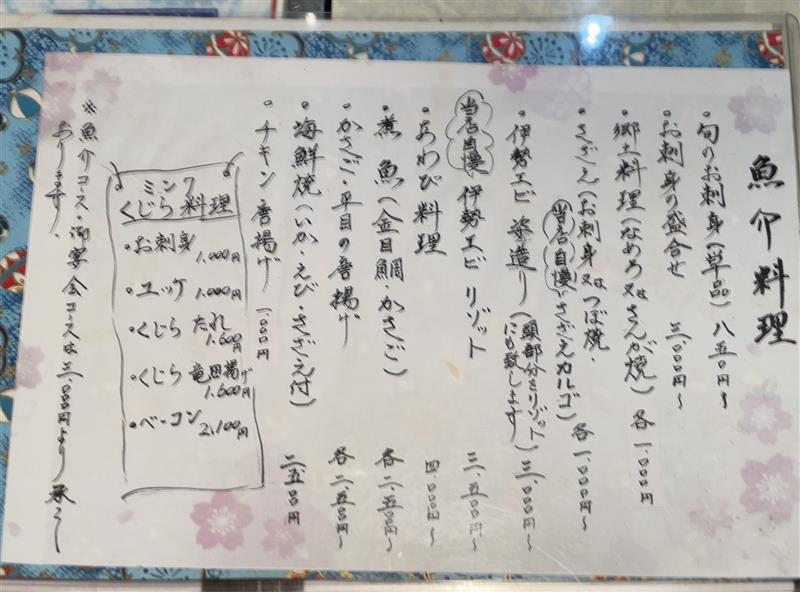 魚介料理
・旬のお刺身(単品) 八五〇円〜
・お刺身の盛合せ 三、〇〇〇円〜
・郷土料理(なめろう又はさんが焼) 各一、〇〇〇円
・さざえ(お刺身又はつぼ焼・
当店自慢 さざえカルゴ) 各一、〇〇〇円〜
・伊勢エビ 姿造り(頭部分をリゾット
にも致します) 三、〇〇〇円〜
当店自慢 伊勢エビ リゾット 三、五〇〇円〜
・あわび料理 四、〇〇〇円〜
・煮魚(金目鯛・かさご) 各二、五〇〇円〜
・かさご・平目の唐揚げ 各二、五〇〇円〜
・海鮮焼(いか・えび・さざえ付) 二五〇〇円
・チキン唐揚げ 一、〇〇〇円
ミンク
くじら料理
・お刺身 1,000円
・ユッケ 1,000円
・くじら たれ 1,600円
・くじら 竜田揚げ 1,600円
・ベーコン 2,100円
※魚介コース・御宴会コースは三、〇〇〇円より承って
おります